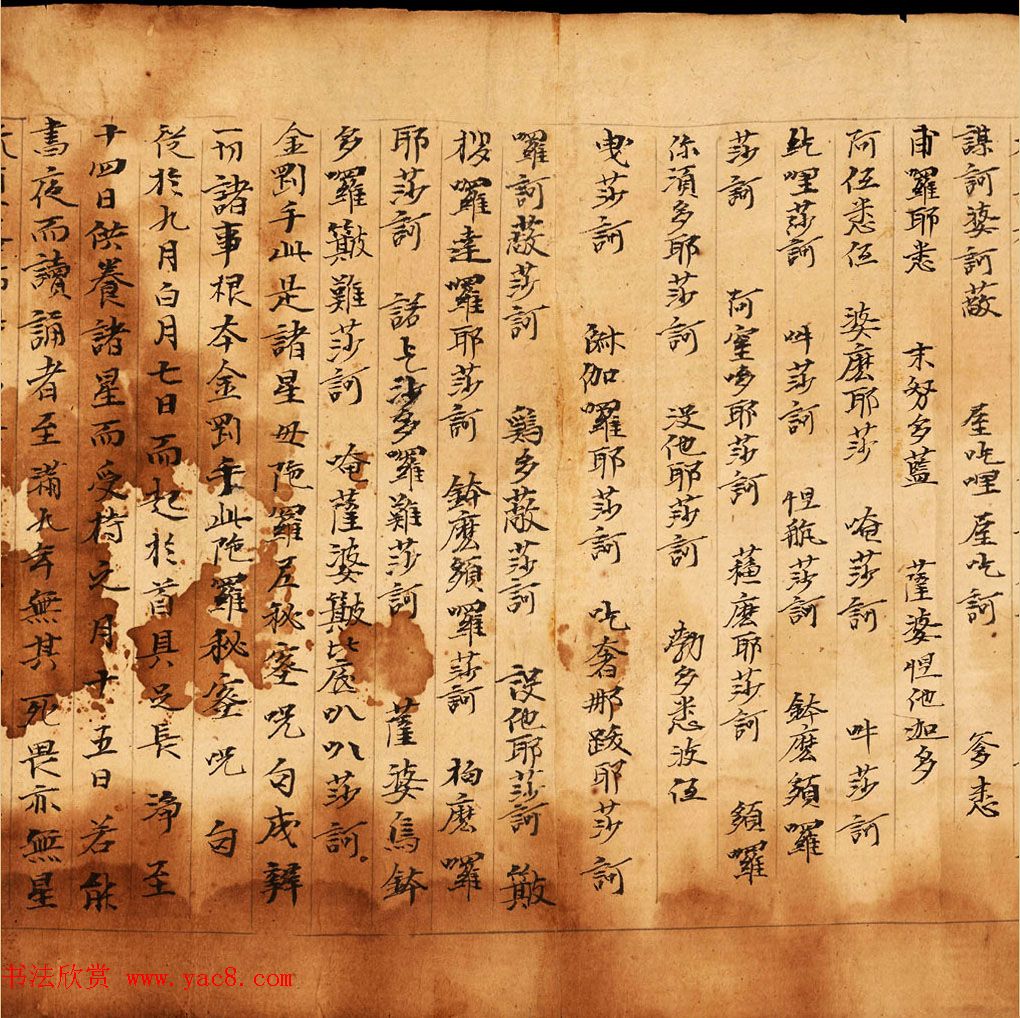 謀訶婆訶蔽 屋吃哩屋吃訶 爹悉
甫羅耶悉 末努多藍 薩婆怛他迦多
阿伍悉伍 婆麽耶莎 唵莎訶 吽莎訶
紇哩莎訶 吽莎訶 怛𠰷莎訶 鉢麽頞囉
莎訶 阿窒哆耶莎訶 蘓麽耶莎訶 頞囉
你湏多耶莎訶 没他耶莎訶 勃多悉波伍
曳莎訶 𫆀伽囉耶莎訶 吃奢那跛耶莎訶
囉訶蔽莎訶 鷄多蔽莎訶 設他耶莎訶 簸
折囉達囉耶莎訶 鉢麽頞囉莎訶 枸麽囉
耶莎訶 諾乞沙多囉難莎訶 薩婆烏鉢
多囉簸難莎訶 唵薩婆簸底叭叭莎訶
金罰手此是諸星毋陁羅尼秘蜜呪句成辦
一切諸事根本金罰手此陁羅秘蜜呪句
從於九月白月七日而起於首具足長淨至
十四日供養諸星而受持之月十五日若能
書夜而讀誦者至滿九年無其死畏亦無星
书法欣赏 www.yac8.com